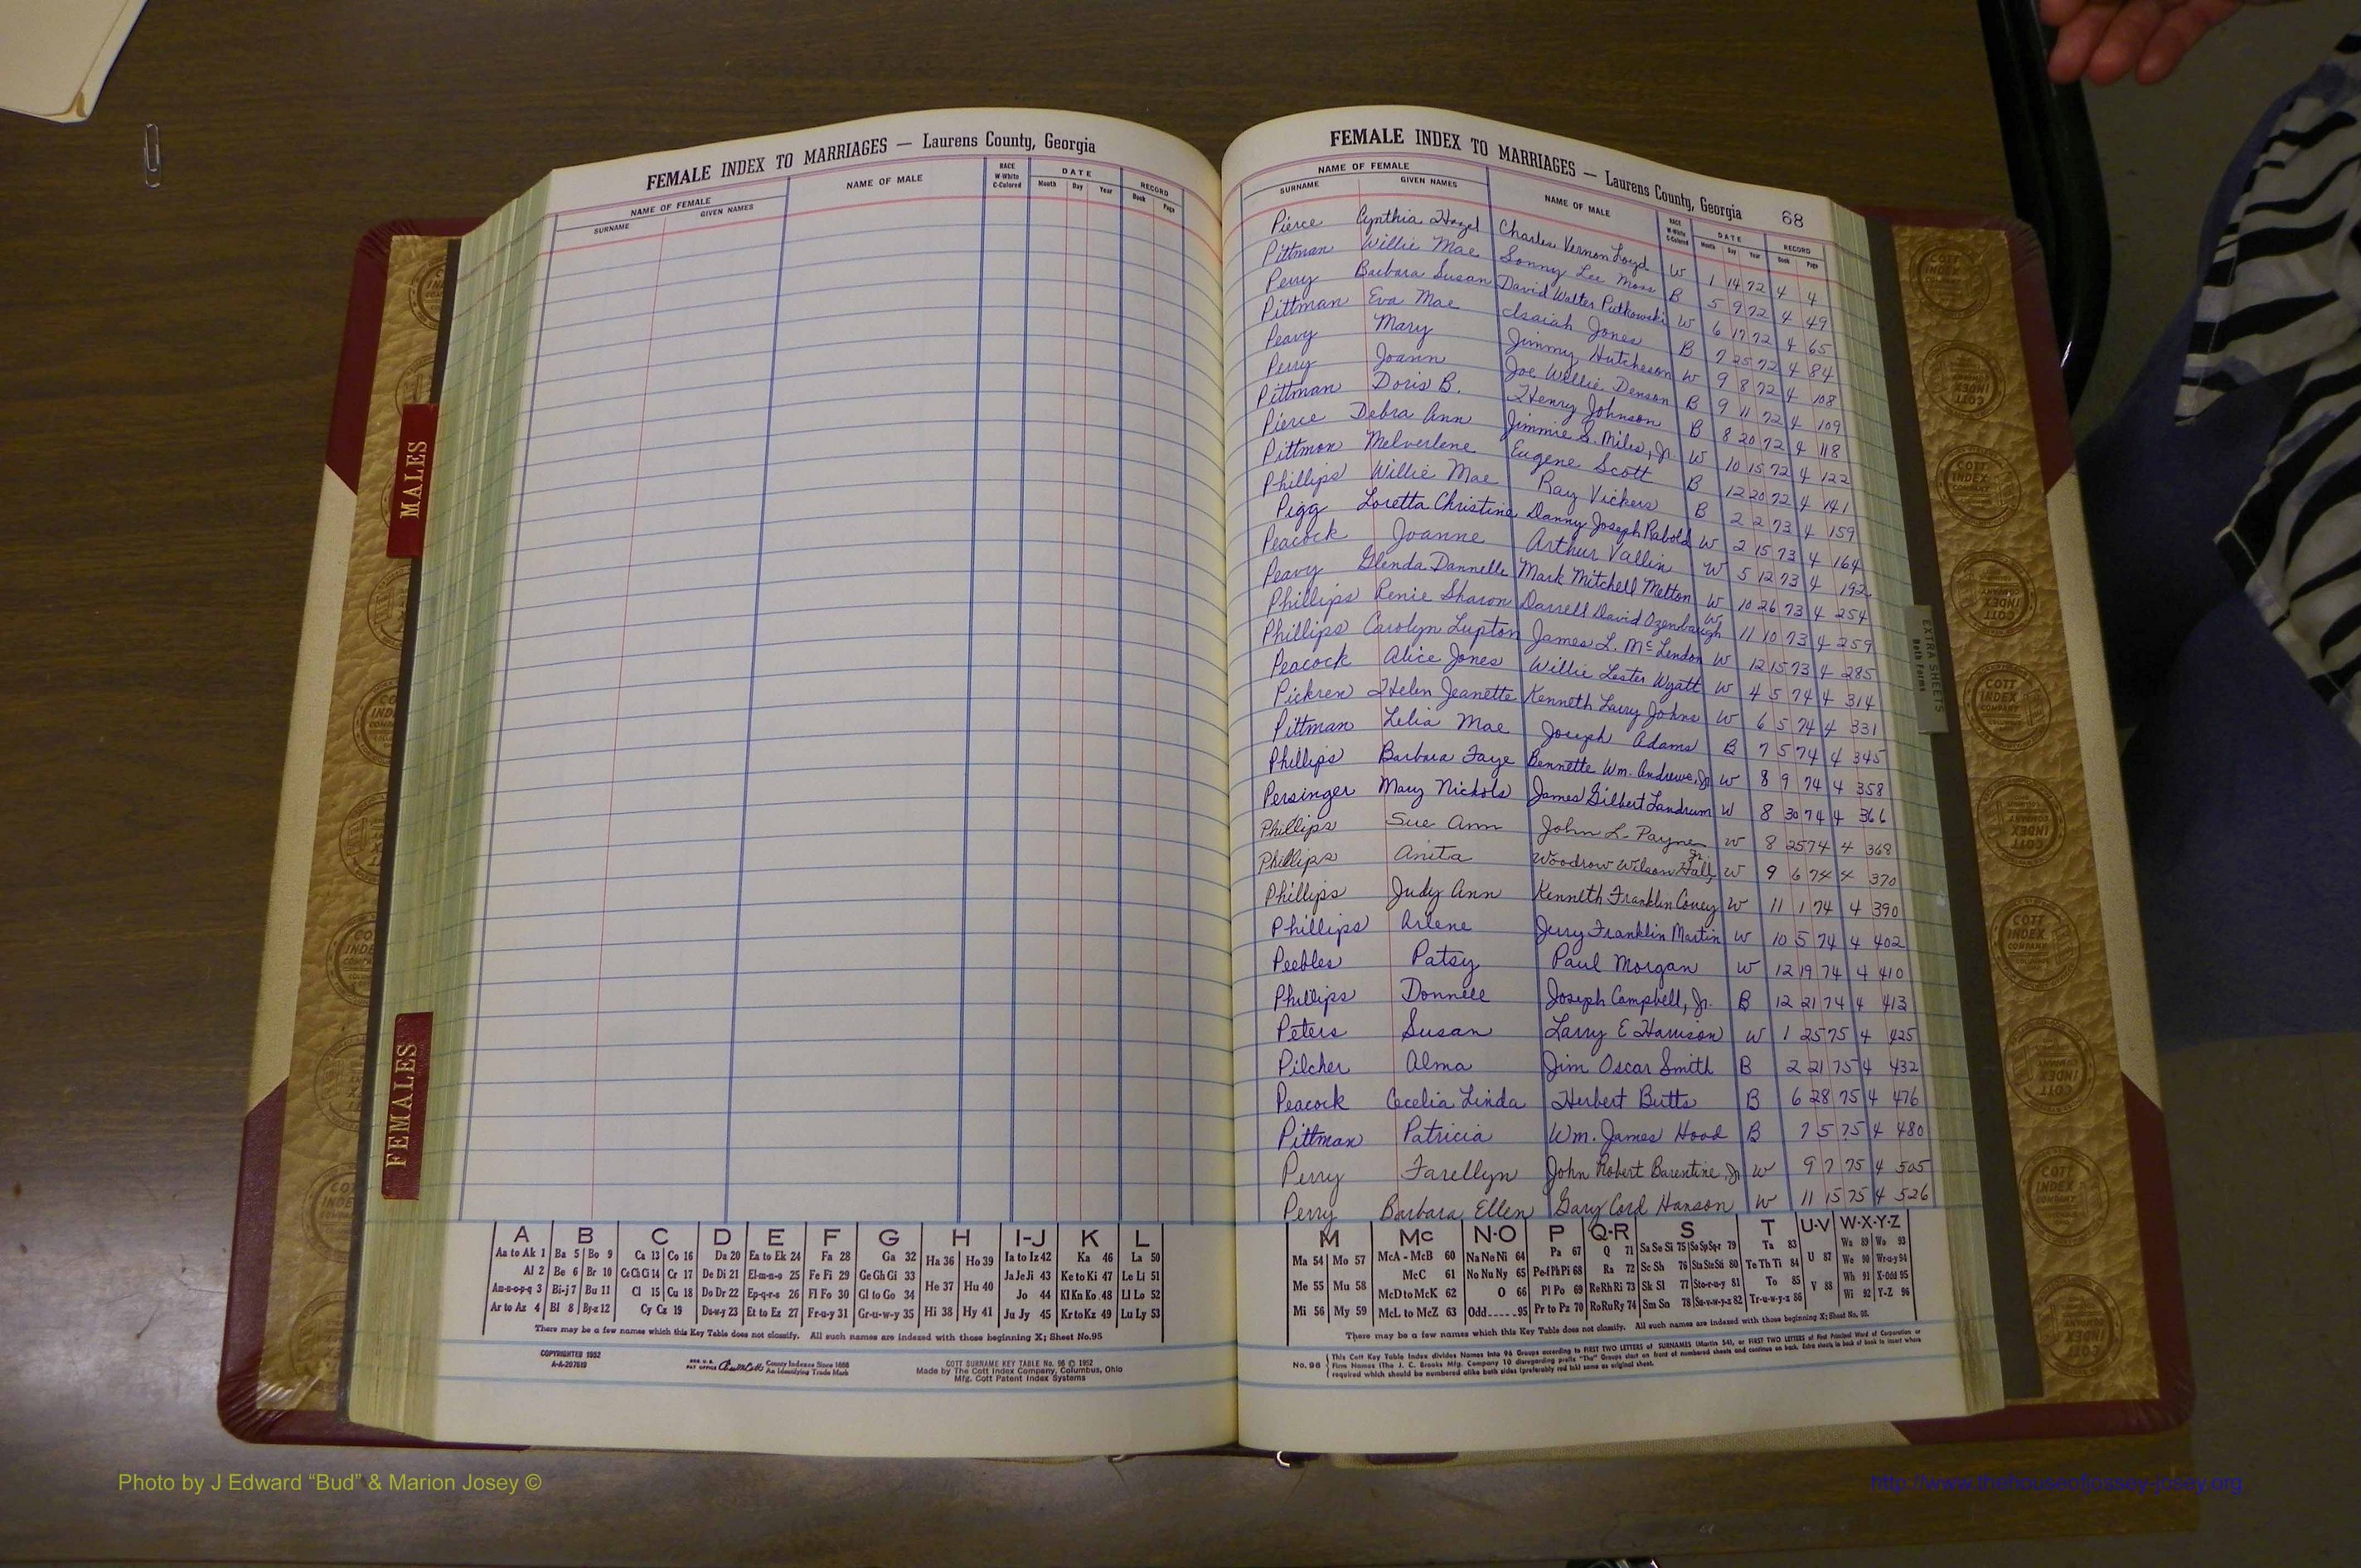 FEMALE INDEX TO MARRIAGES — Laurens County, Georgia
NAME OF FEMALE
SURNAME GIVEN NAMES
NAME OF MALE
RACE W-White C-Colored
DATE
Month Day Year
RECORD
Book Page
FEMALE INDEX TO MARRIAGES — Laurens County, Georgia 68
NAME OF FEMALE
SURNAME GIVEN NAMES
NAME OF MALE
RACE W-White C-Colored
DATE
Month Day Year
RECORD
Book Page
Pierce Cynthia Hazel Charles Vernon Loyd W 1 14 72 4 4
Pittman Willie Mae Sonny Lee Moss B 5 9 72 4 49
Perry Barbara Susan David Walter Putkowski W 6 17 72 4 65
Pittman Eva Mae Isaiah Jones B 7 25 72 4 84
Peavy Mary Jimmy Hutcheson W 9 8 72 4 108
Perry Joann Joe Willie Denson B 9 11 72 4 109
Pittman Doris B. Henry Johnson B 8 20 72 4 118
Pierce Debra Ann Jimmie S. Miles, Jr. W 10 15 72 4 122
Pittman Melverlene Eugene Scott B 12 20 72 4 141
Phillips Willie Mae Ray Vickers B 2 2 73 4 159
Pigg Loretta Christine Danny Joseph Rabold W 2 15 73 4 164
Peacock Joanne Arthur Vallin W 5 12 73 4 192
Peavy Glenda Dannelle Mark Mitchell Melton W 10 26 73 4 254
Phillips Renie Sharon Darrell David Ozenbaugh W 11 10 73 4 259
Phillips Carolyn Lupton James L. McLendon W 12 15 73 4 285
Peacock Alice Jones Willie Lester Wyatt W 4 5 74 4 314
Pickren Helen Jeanette Kenneth Larry Johns W 6 5 74 4 331
Pittman Lelia Mae Joseph Adams B 7 5 74 4 345
Phillips Barbara Faye Bennette Wm. Andrews, Jr. W 8 9 74 4 358
Persinger Mary Nichols James Gilbert Landrum W 8 30 74 4 366
Phillips Sue Ann John L. Payne W 8 25 74 4 368
Phillips Anita Woodrow Wilson Hall, Jr. W 9 6 74 4 370
Phillips Judy Ann Kenneth Franklin Coney W 11 1 74 4 390
Phillips Arlene Jerry Franklin Martin W 10 5 74 4 402
Peebles Patsy Paul Morgan W 12 19 74 4 410
Phillips Donnell Joseph Campbell, Jr. B 12 21 74 4 413
Peters Susan Larry E Harrison W 1 25 75 4 425
Pilcher Alma Jim Oscar Smith B 2 21 75 4 432
Peacock Cecelia Linda Herbert Butts B 6 28 75 4 476
Pittman Patricia Wm. James Hood B 7 5 75 4 480
Perry Farellyn John Robert Barentine, Jr. W 9 7 75 4 505
Perry Barbara Ellen Gary Cord Hanson W 11 15 75 4 526
MALES
FEMALES
EXTRA SHEETS
Both Forms
A B C D E F G H I-J K L
Aa to Ak 1 Ba 5 Bo 9 Ca 13 Co 16 Da 20 Ea to Ek 24 Fa 28 Ga 32 Ha 36 Ho 39 Ia to Iz 42 Ka 46 La 50
Al 2 Be 6 Br 10 Ce Ch Ci 14 Cr 17 De Di 21 El-m-n-o 25 Fe Fi 29 Ge Gh Gi 33 He 37 Hu 40 Ja Je Ji 43 Ke to Ki 47 Le Li 51
Am-n-o-p-q 3 Bi-j 7 Bu 11 Cl 15 Cu 18 Do Dr 22 Ep-q-r-s 26 Fl Fo 30 Gl to Go 34 Jo 44 Kl Kn Ko 48 Ll Lo 52
Ar to Az 4 Bl 8 By-z 12 Cy Cz 19 Du-w-y 23 Et to Ez 27 Fr-u-y 31 Gr-u-w-y 35 Hi 38 Hy 41 Ju Jy 45 Kr to Kz 49 Lu Ly 53
There may be a few names which this Key Table does not classify. All such names are indexed with those beginning X; Sheet No.95
COPYRIGHTED 1952
A-A-207619
County Indexes Since 1888
An Identifying Trade Mark
COTT SURNAME KEY TABLE No. 96 © 1952
Made by The Cott Index Company, Columbus, Ohio
Mfg. Cott Patent Index Systems
M Mc N-O P Q-R S T U-V W-X-Y-Z
Ma 54 Mo 57 McA - McB 60 Na Ne Ni 64 Pa 67 Q 71 Sa Se Si 75 So Sp Sq-r 79 Ta 83 U 87 Wa 89 Wo 93
Me 55 Mu 58 McC 61 No Nu Ny 65 Pe-f Ph Pi 68 Ra 72 Sc Sh 76 Sta Ste Sti 80 Te Th Ti 84 We 90 Wr-u-y 94
McD to McK 62 O 66 Pl Po 69 Re Rh Ri 73 Sk Sl 77 Sto-r-u-y 81 To 85 V 88 Wh 91 X-Odd 95
Mi 56 My 59 McL to McZ 63 Odd 95 Pr to Pz 70 Ro Ru Ry 74 Sm Sn 78 Su-v-w-y-z 82 Tr-u-w-y-z 86 Wi 92 Y-Z 96
There may be a few names which this Key Table does not classify. All such names are indexed with those beginning X; Sheet No. 95.
No. 96 This Cott Key Table Index divides Names into 96 Groups according to FIRST TWO LETTERS of SURNAMES (Martin 54), or FIRST TWO LETTERS of First Principal Word of Corporation or
Firm Names (The J. C. Brooks Mfg. Company 10 disregarding prefix "The" Groups start on front of numbered sheets and continue on back. Extra sheets in back of book to insert where
required which should be numbered alike both sides (preferably red ink) same as original sheet.
Photo by J Edward “Bud” & Marion Josey ©
http://www.thehouseofjossey-josey.org